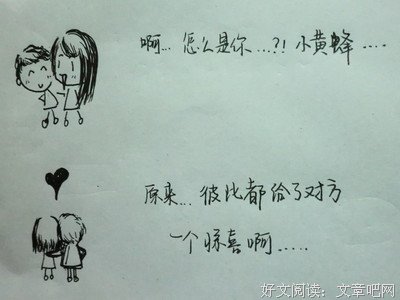 啊... 怎么是你...?! 小黄蜂.....
原来... 彼此都给了对方
一个惊喜啊.....
好文阅读：文章吧网